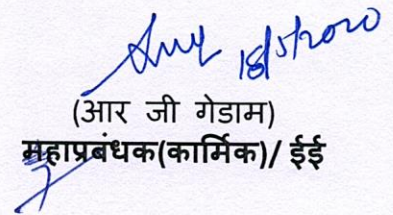 18/5/2020
(आर जी गेडाम)
महाप्रबंधक(कार्मिक)/ ईई